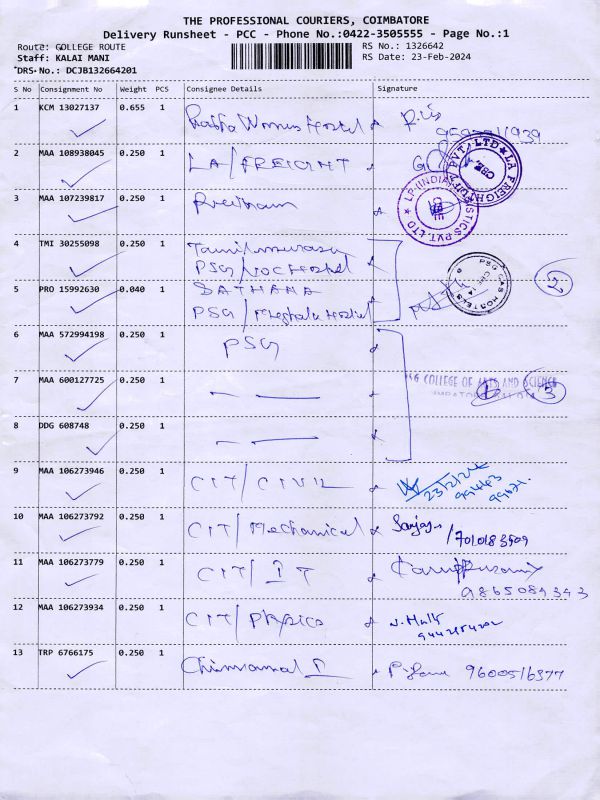 THE PROFESSIONAL COURIERS, COIMBATORE
Delivery Runsheet - PCC - Phone No.:0422-3505555 - Page No.:1
Route: GOLLEGE ROUTE
RS No.: 1326642
Staff: KALAI MANI
RS Date: 23-Feb-2024
DRS No.: DCJB132664201
S No Consignment No Weight PCS Consignee Details Signature
1 KCM 13027137 0.655 1 Womens Hostel
2 MAA 108938045 0.250 1 LA/FREIGHT
3 MAA 107239817 0.250 1 Preetham
4 TMI 30255098 0.250 1 Tamilmurasu
PSG/ Hostel
5 PRO 15992630 0.040 1 SATHANA
PSG/ Hostel
6 MAA 572994198 0.250 1 PSG
PSG COLLEGE OF ARTS AND SCIENCE
7 MAA 600127725 0.250 1 3
8 DDG 608748 0.250 1
9 MAA 106273946 0.250 1 CIT/CIVIL 23/2/24
10 MAA 106273792 0.250 1 CIT/Mechanical
11 MAA 106273779 0.250 1 CIT/IT
9865084343
12 MAA 106273934 0.250 1 CIT/Physics
13 TRP 6766175 0.250 1 9600516377
PSG CAS HOSTELS
2